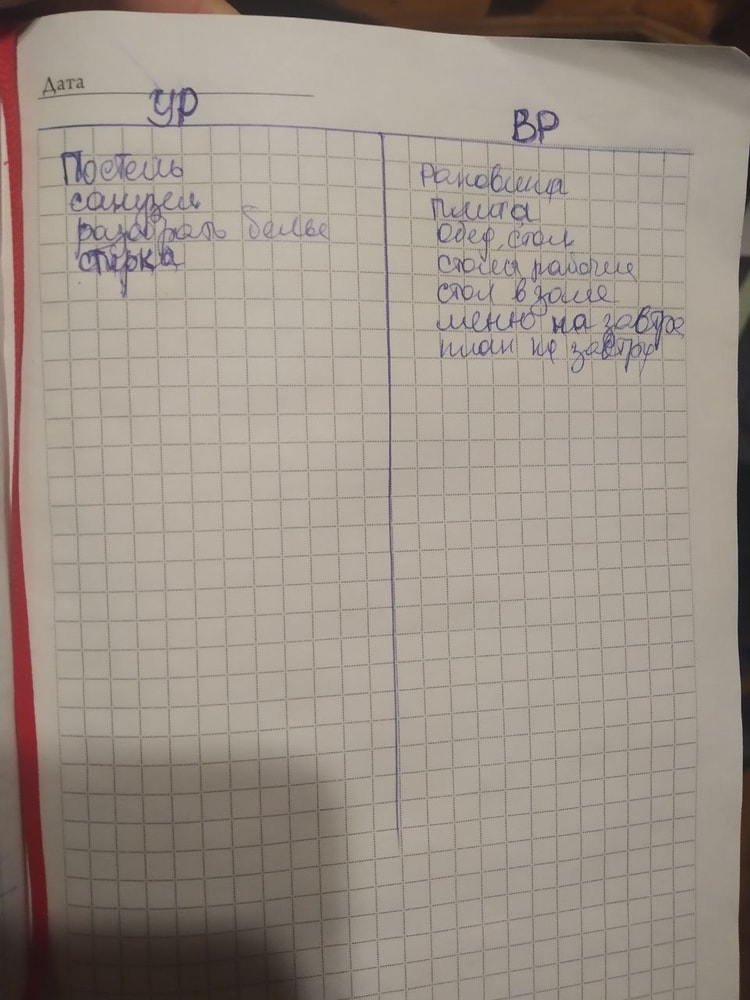 Дата
УР
Постель
санузел
разобрать белье
стирка
ВР
раковина
плита
обед. стол
столы рабочие
стол в зале
меню на завтра
план на завтра